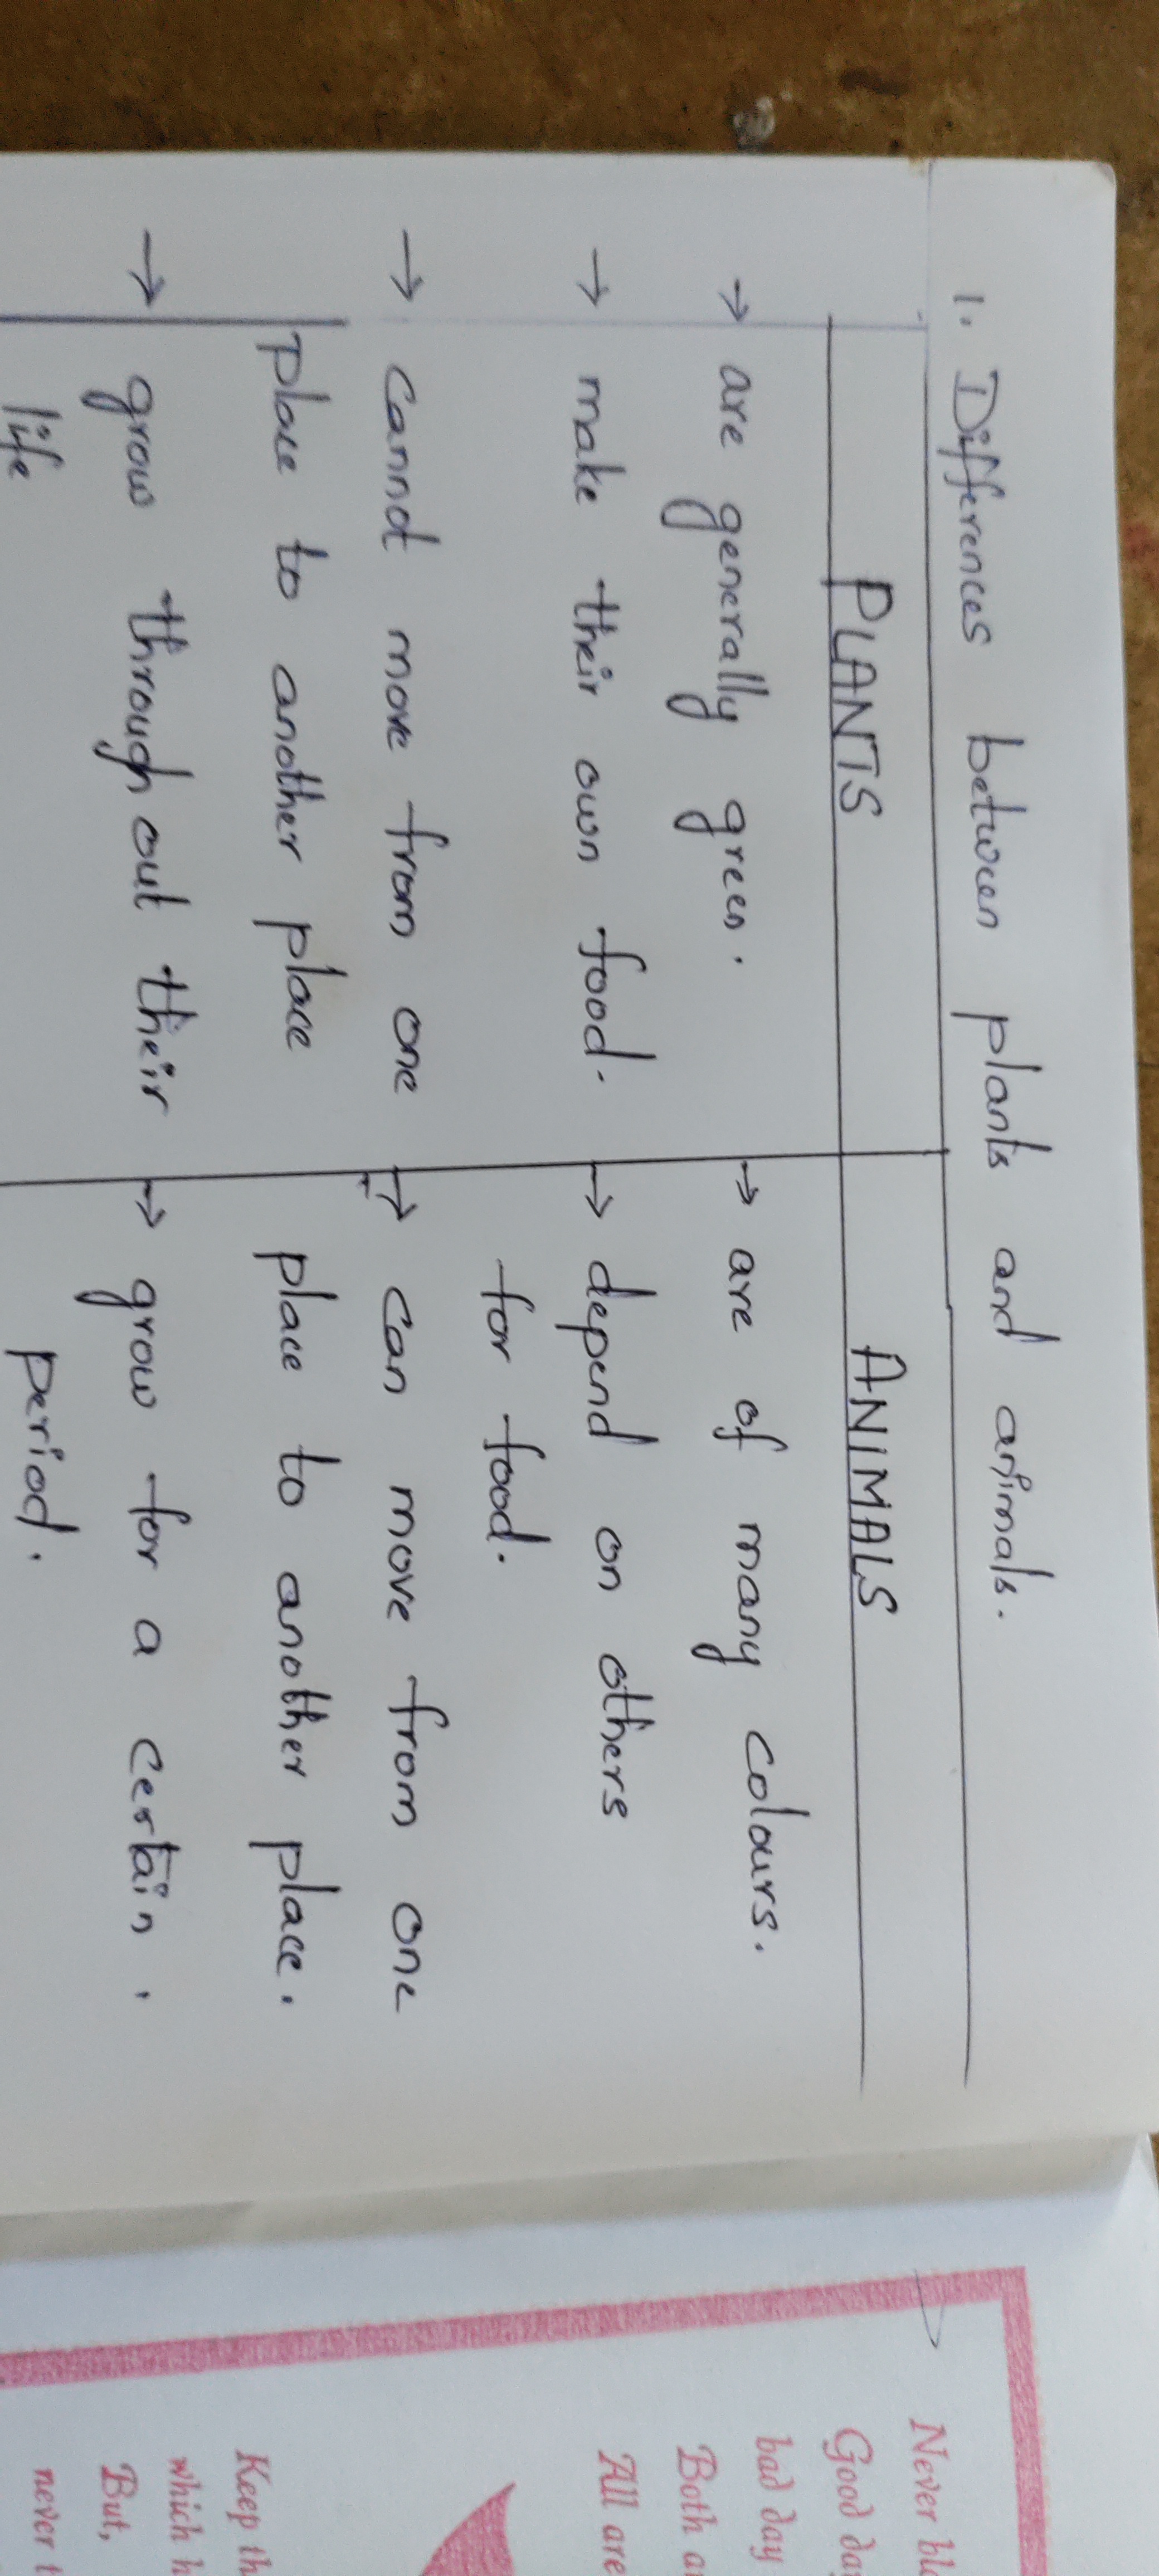 1. Differences between plants and animals.
PLANTS ANIMALS
→ are generally green. → are of many colours.
→ make their own food. → depend on others
for food.
→ cannot move from one → can move from one
place to another place place to another place.
→ grow through out their → grow for a certain .
life period.
Never
Good
bad day
Both
All are
Keep
which
But,
never